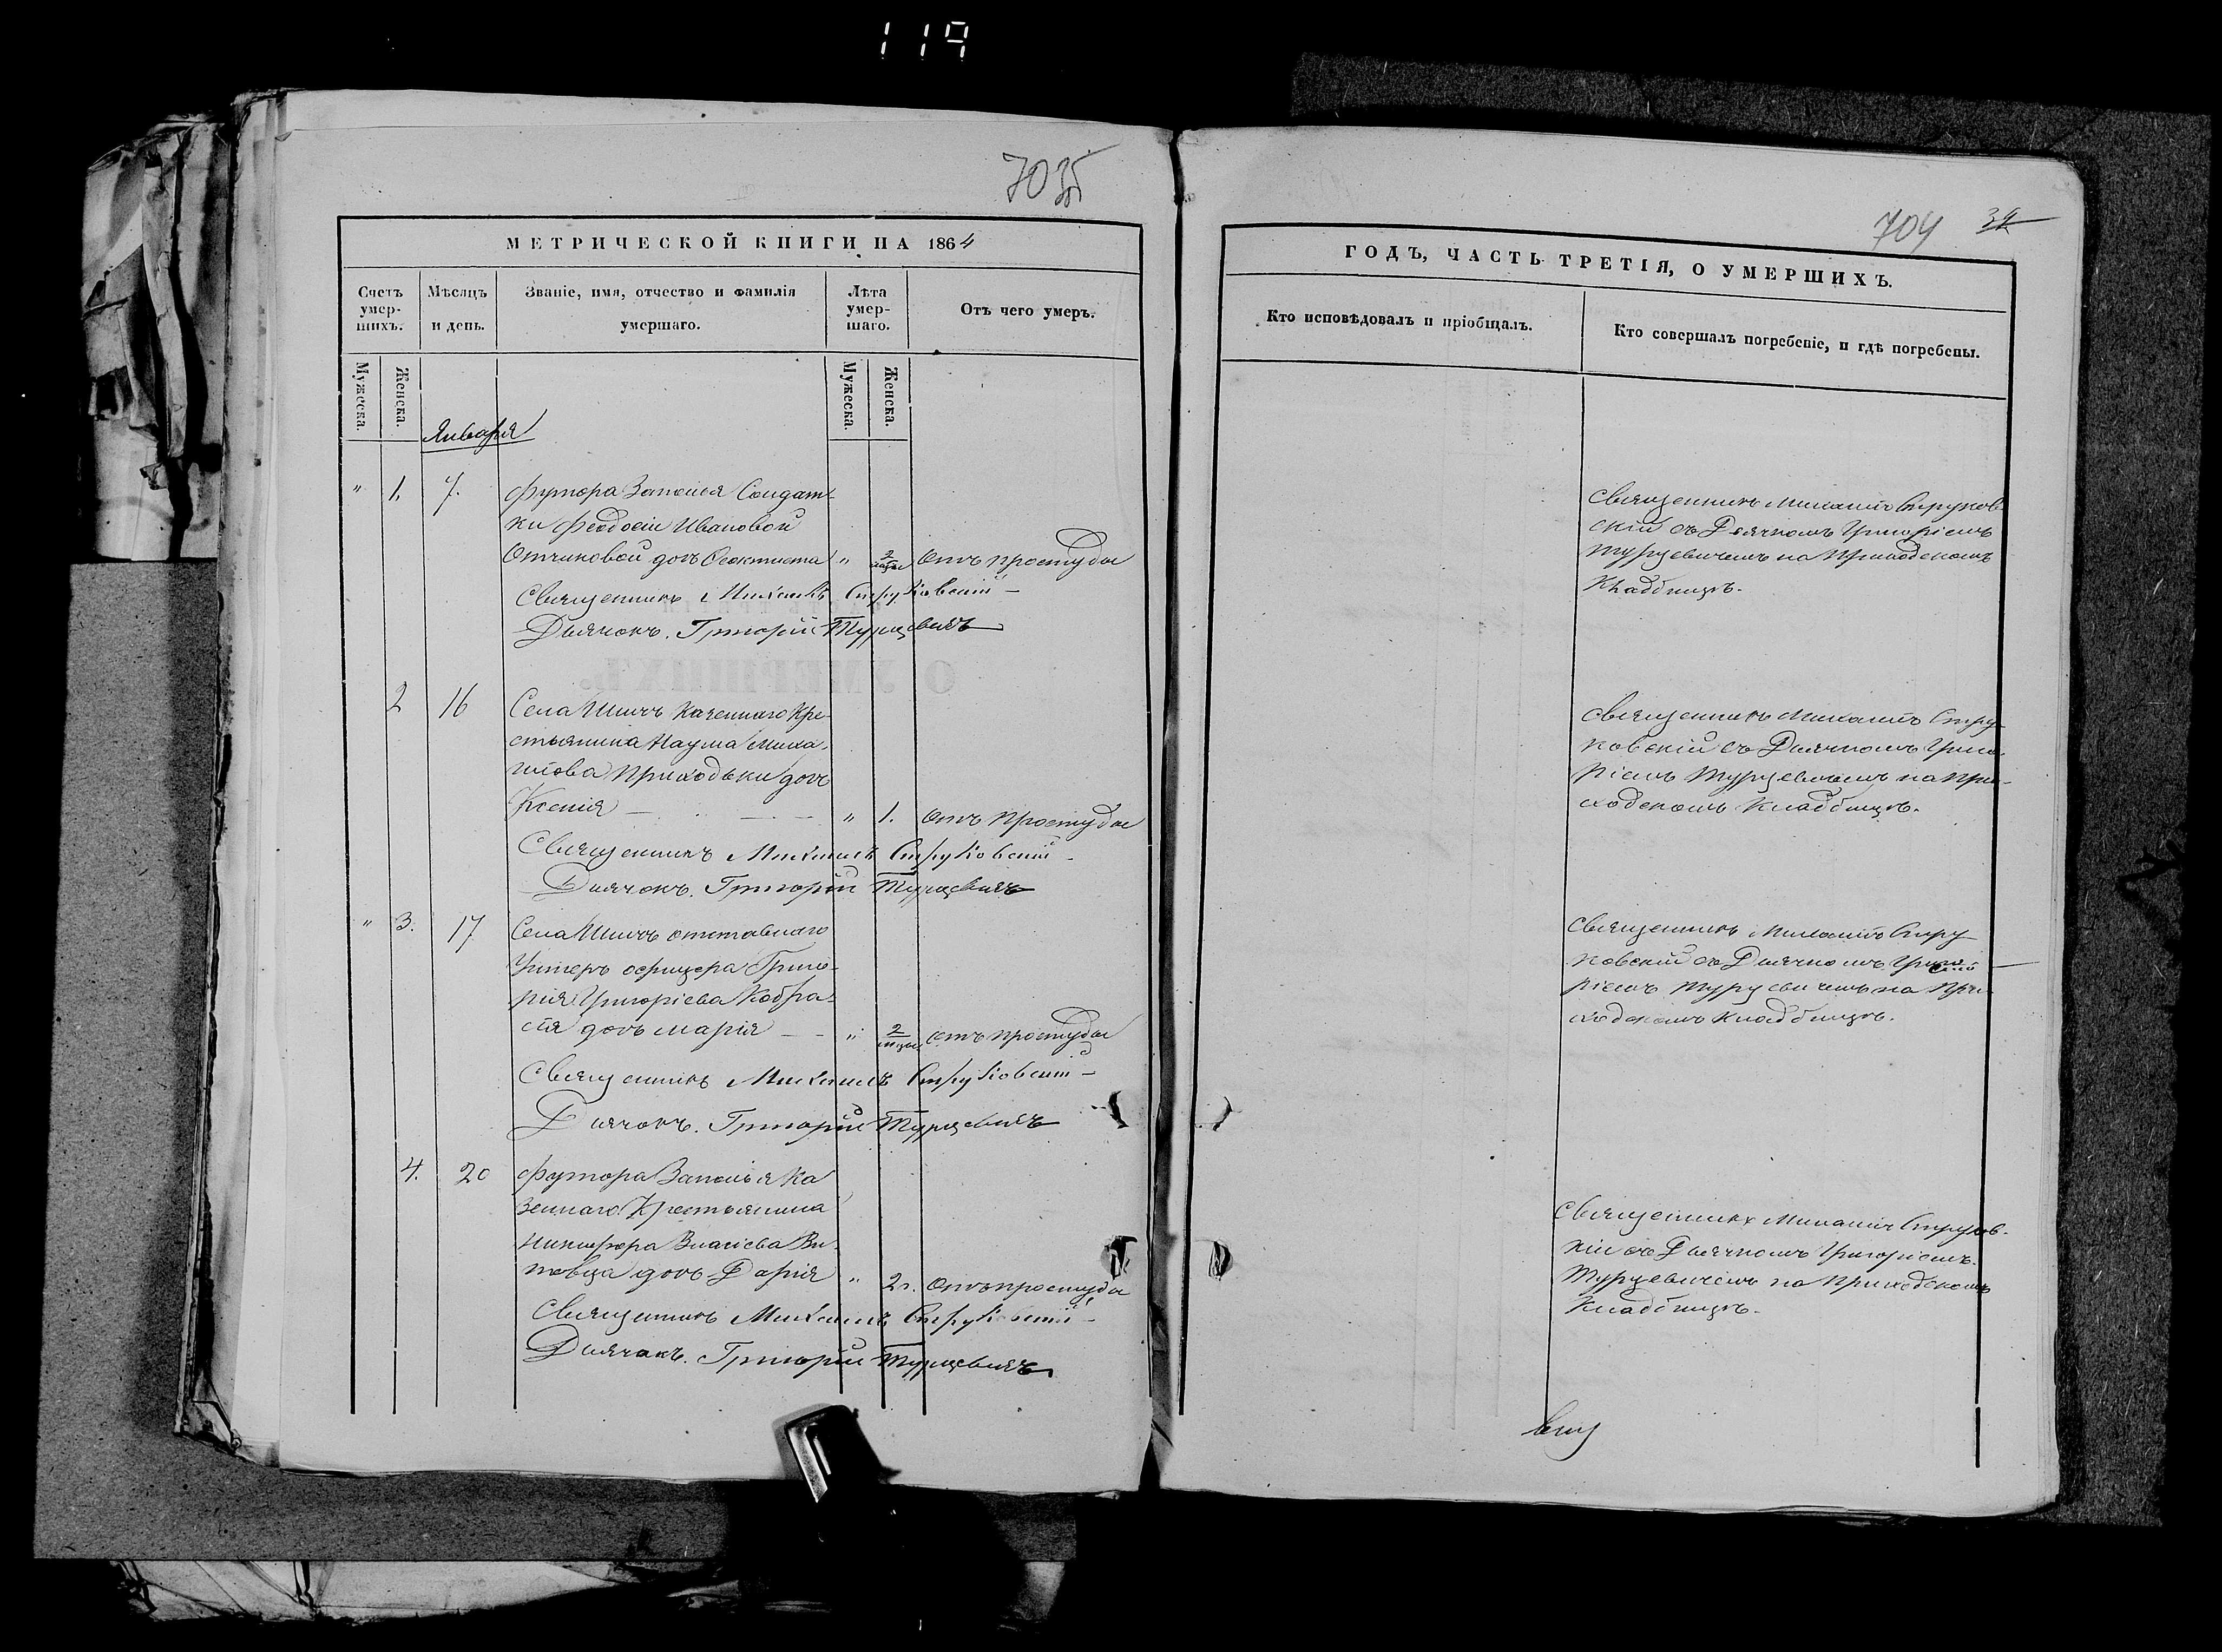 119
703б
МЕТРИЧЕСКОЙ КНИГИ НА 1864
Счетъ умер-шихъ.
Мѣсяцъ и день.
Званіе, имя, отчество и фамилія умершаго.
Лѣта умер-шаго.
Отъ чего умеръ.
Мужеска.
Женска.
Мужеска.
Женска.
Января
" 1. 7. Футора Заполья Солдат-
ки Феодосіи Ивановой
дочь Феоктиста " 2 мцы отъ простуды
Священникъ Михаилъ Струковскій
Дьячокъ Григорій Турцевичъ
2 16 Села казеннаго Кре-
стьянина Наума Миха-
илова Приходьки дочь
Ксенія " 1. отъ простуды
Священникъ Михаилъ Струковскій
Дьячокъ Григорій Турцевичъ
" 3. 17 Села отставнаго
Унтеръ офицера Григо-
рія Григоріева
дочь Марія " 2 мцы отъ простуды
Священникъ Михаилъ Струковскій
Дьячокъ Григорій Турцевичъ
4. 20 Футора Заполья Ка
зеннаго Крестьянина
Никифора Власіева Ви-
товца дочь Дарія " 2 г. отъ простуды
Священникъ Михаилъ Струковскій
Дьячокъ Григорій Турцевичъ
704 34
ГОДЪ, ЧАСТЬ ТРЕТІЯ, О УМЕРШИХЪ.
Кто исповѣдовалъ и пріобщалъ.
Кто совершалъ погребеніе, и гдѣ погребены.
Священникъ Михаилъ Струков-
скій съ Дьячкомъ Григоріемъ
Турцевичемъ на Приходскомъ
Кладбищѣ.
Священникъ Михаилъ Стру-
ковскій съ Дьячкомъ Григо-
ріемъ Турцевичемъ на При-
ходскомъ Кладбищѣ.
Священникъ Михаилъ Стру
ковскій съ Дьячкомъ Григо
ріемъ Турцевичемъ на При-
ходскомъ Кладбищѣ.
Священникъ Михаилъ Струков-
кій съ Дьячкомъ Григоріемъ
Турцевичемъ на Приходскомъ
Кладбищѣ.